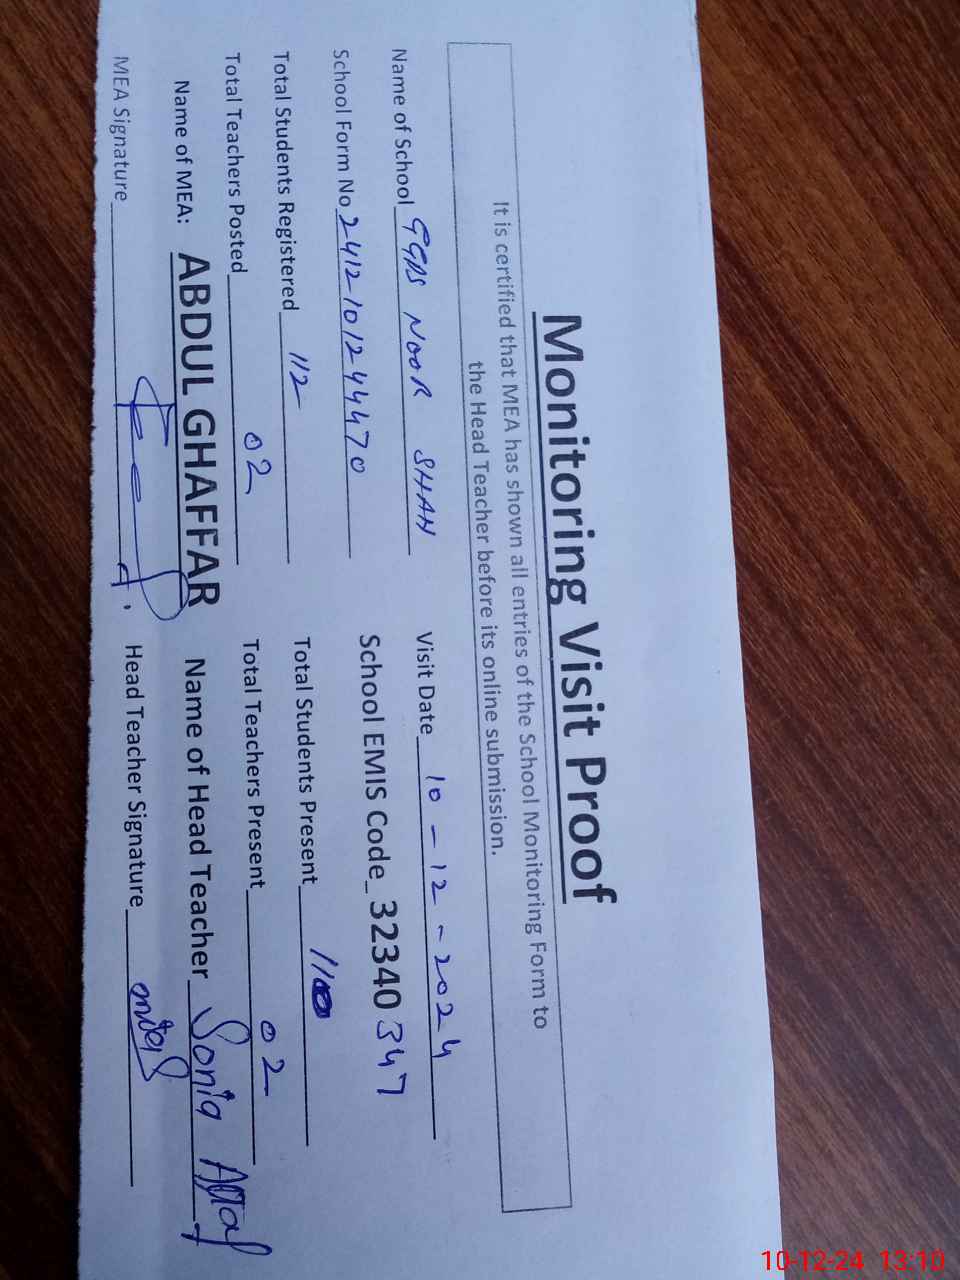 Monitoring Visit Proof
It is certified that MEA has shown all entries of the School Monitoring Form to
the Head Teacher before its online submission.
Name of School GGPS NOOR SHAH Visit Date 10-12-2024
School Form No 2412101244470 School EMIS Code_32340347
Total Students Registered 112 Total Students Present
Total Teachers Posted 02 Total Teachers Present 02
Name of MEA: ABDUL GHAFFAR Name of Head Teacher Sonia Altaf
MEA Signature Head Teacher Signature
10-12-24 13:10